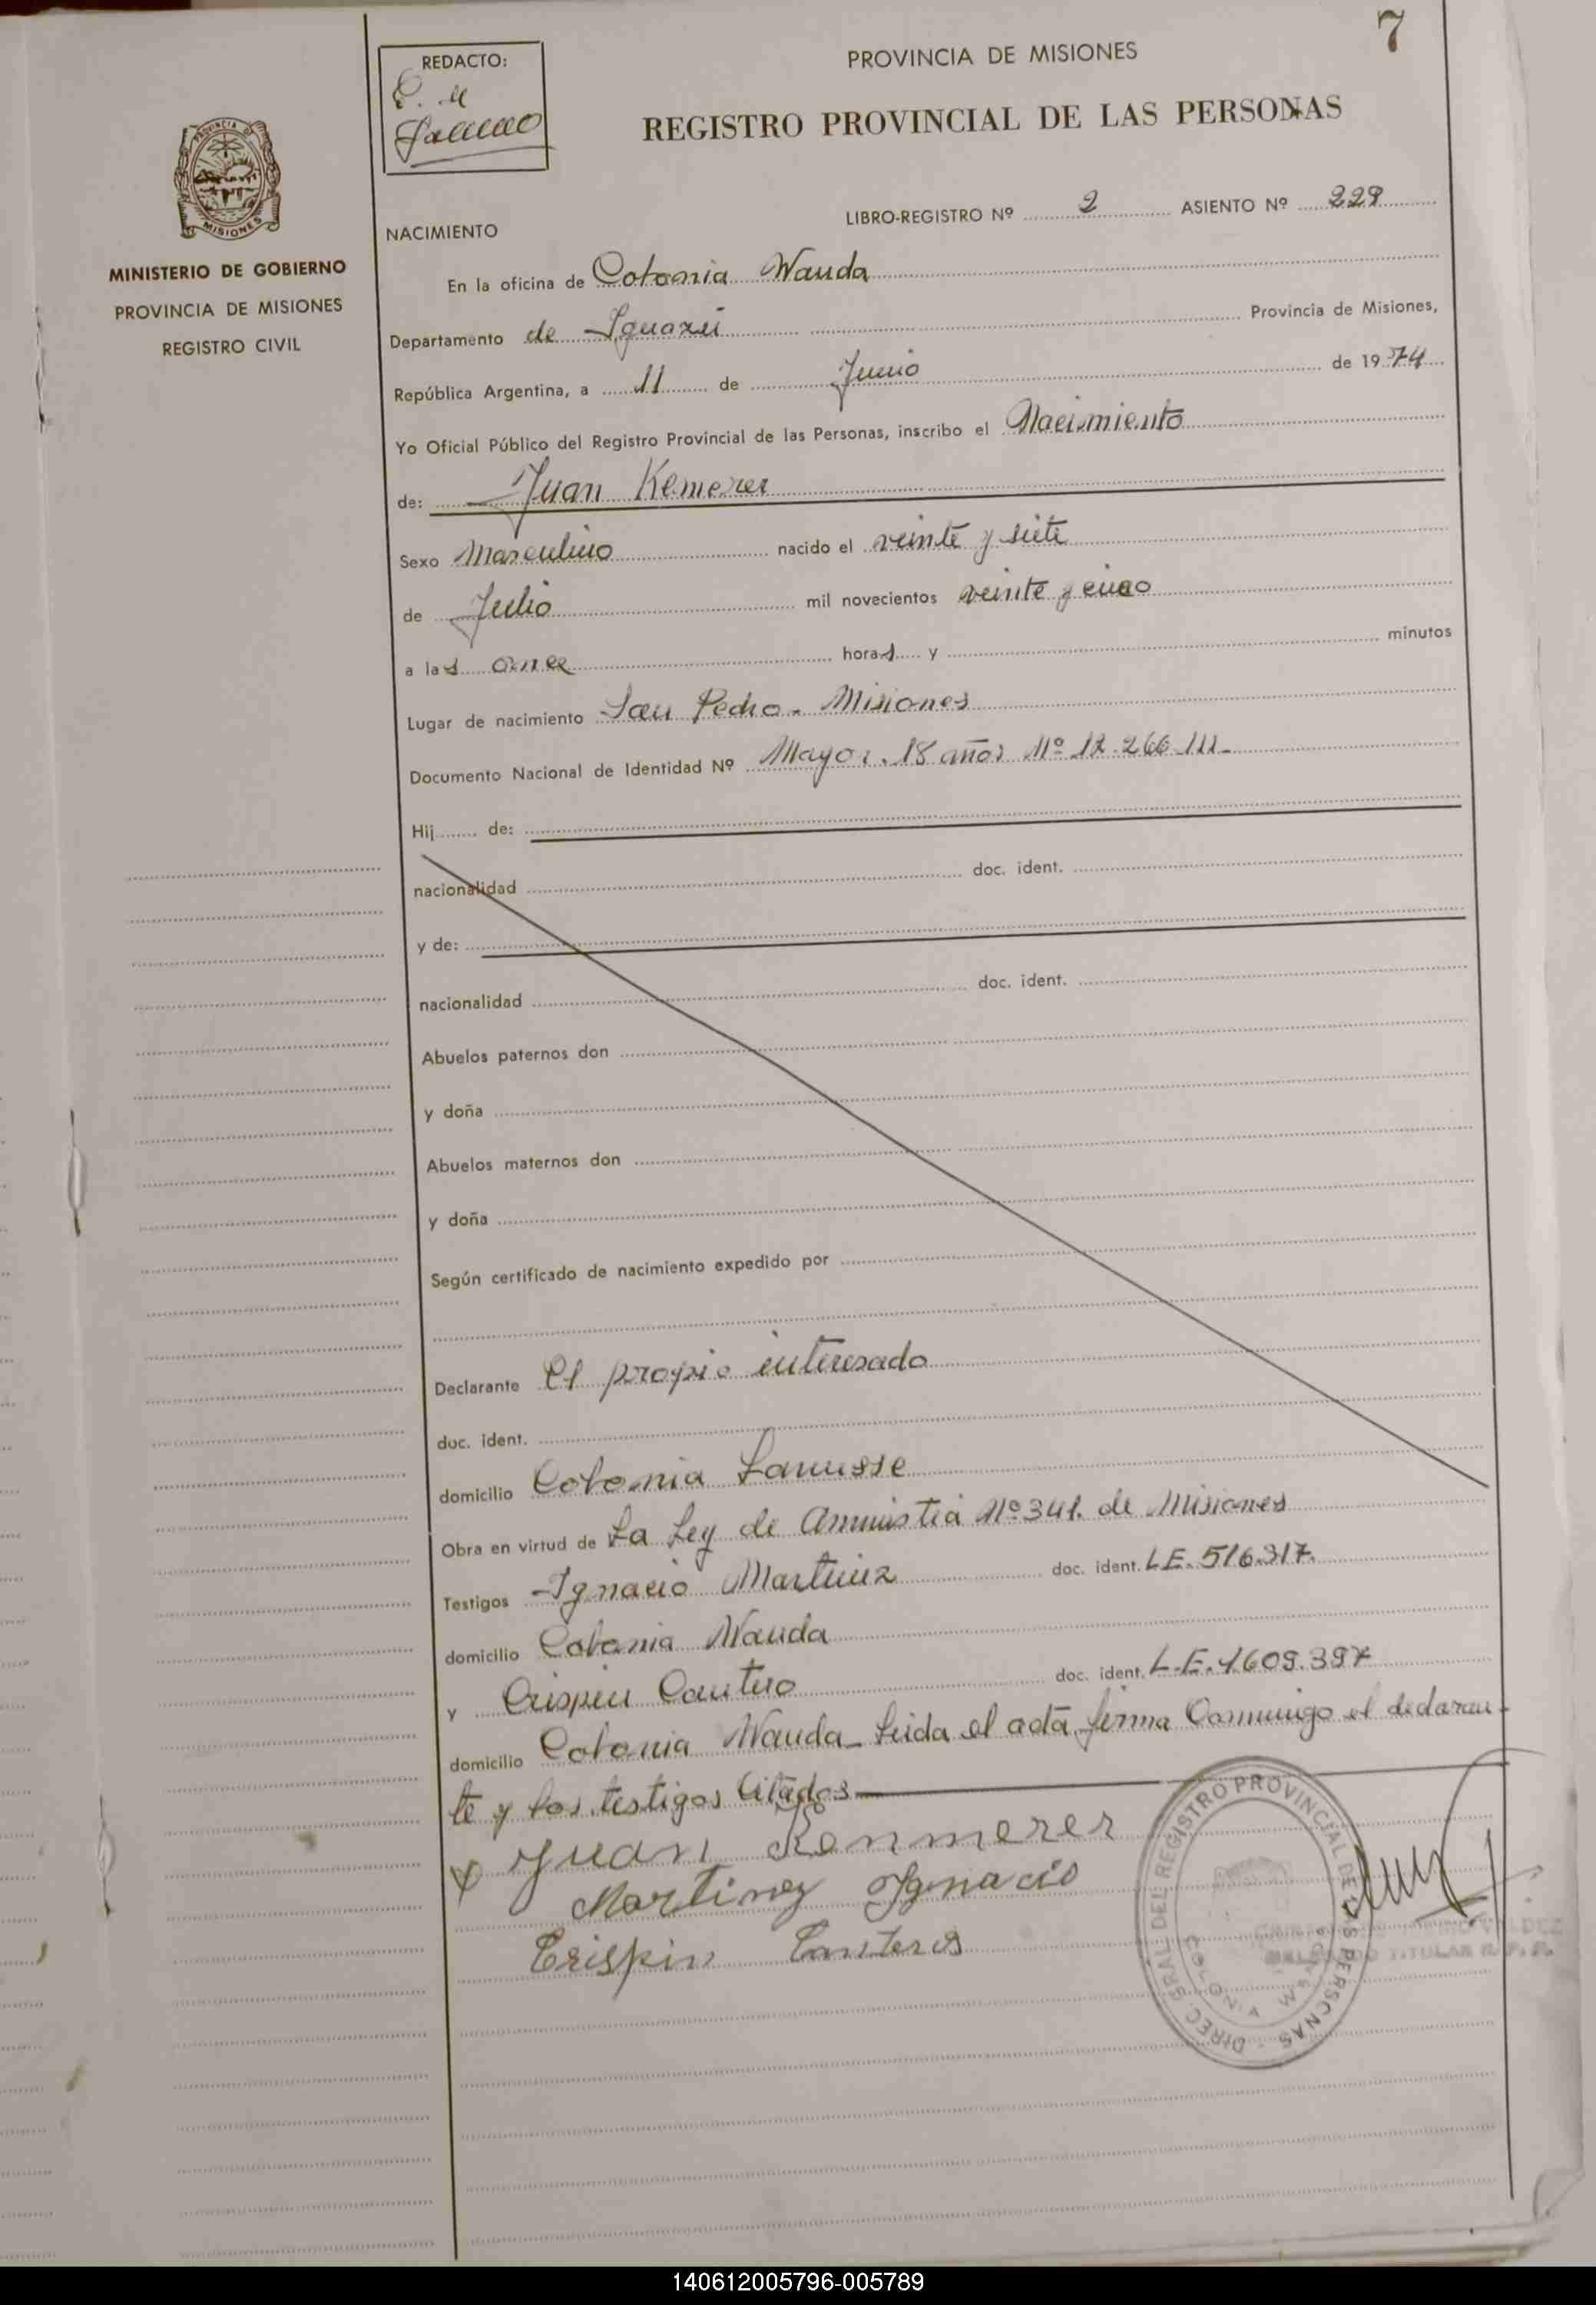 7
REDACTO:
PROVINCIA DE MISIONES
REGISTRO PROVINCIAL DE LAS PERSONAS
PROVINCIA DE
MISIONES
MINISTERIO DE GOBIERNO
PROVINCIA DE MISIONES
REGISTRO CIVIL
NACIMIENTO
LIBRO-REGISTRO Nº 2 ASIENTO Nº 229
En la oficina de Colonia Wanda
Departamento de Iguazú Provincia de Misiones,
República Argentina, a 11 de Junio de 1974
Yo Oficial Público del Registro Provincial de las Personas, inscribo el Nacimiento
de: Juan Kemerer
Sexo Masculino nacido el veinte y siete
de Julio mil novecientos veinte y cinco
a las once horas y minutos
Lugar de nacimiento San Pedro - Misiones
Documento Nacional de Identidad Nº Mayor. 18 años Nº 12.266.111-
Hij de:
nacionalidad doc. ident.
y de:
nacionalidad doc. ident.
Abuelos paternos don
y doña
Abuelos maternos don
y doña
Según certificado de nacimiento expedido por
Declarante El propio interesado
doc. ident.
domicilio Colonia Lanusse
Obra en virtud de La Ley de Amnistia Nº 341. de Misiones
Testigos Ignacio Martinez doc. ident. L.E. 516.317.
domicilio Colonia Wanda
y Crispin Cantero doc. ident. L.E. 1609.397
domicilio Colonia Wanda_ Leida el acta, firma Conmigo el declaran-
te y los testigos Citados
Juan Kenmerer
Martinez Ignacio
Crispin Canteros
DIREC. GRAL. DEL REGISTRO PROVINCIAL DE LAS PERSONAS
COLONIA WANDA
TITULAR R. P. P.
140612005796-005789